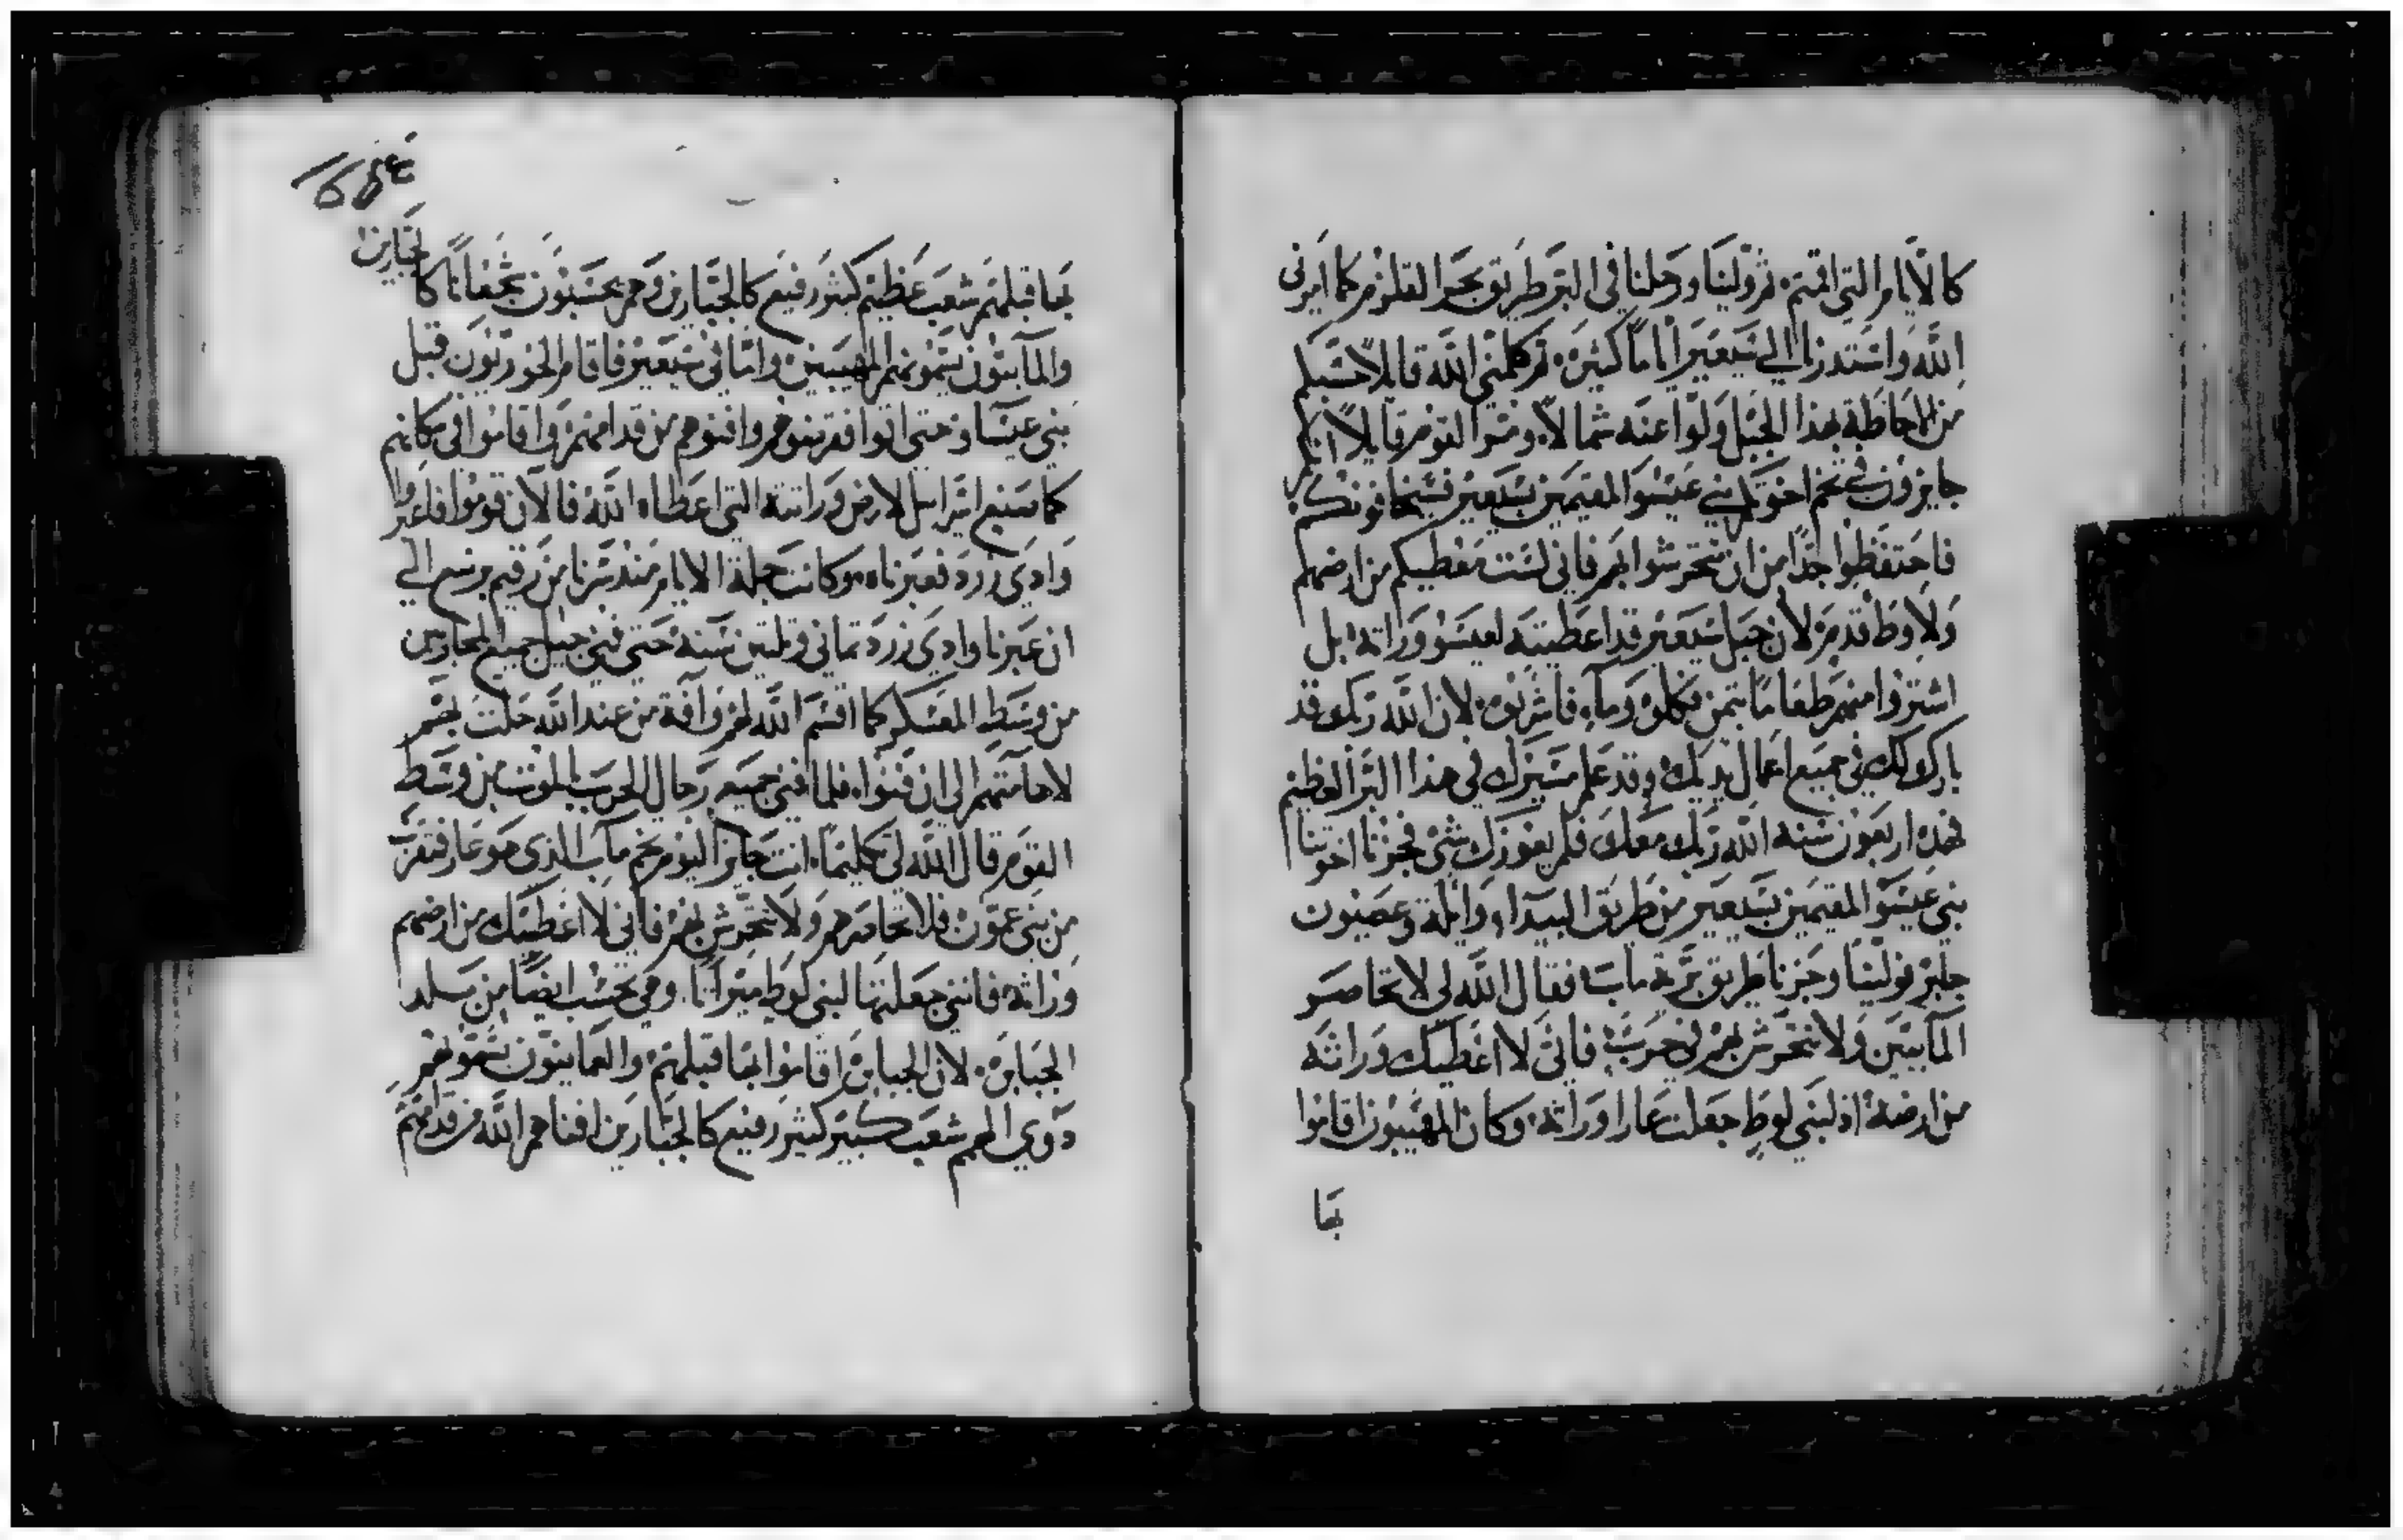 كالايام التي اقمتم. ثم ولينا ورحلنا في البر طريق بحر القلزم كما امرني
الله واستدرنا الي سيعير اياما كثيرة. ثم كلمني الله قايلا حسبكم
من الاحاطة بهذا الجبل ولوا عنه شمالا. ومر القوم قايلا انكم
جايزون في تخم اخوتكم بني عيسو المقيمين بسيعير فسيخافونكم
فاحتفظوا جدا من ان تتحرشوا بهم فاني لست معطيكم من ارضهم
ولا وطا قدم لان جبل سيعير قد اعطيته لعيسو وراثة. بل
اشتروا منهم طعاما بثمن فكلوه وماء فاشربوه. لان الله ربك قد
بارك لك في جميع اعمال يديك. وقد علم مسيرك في هذا البر العظيم
فهذه اربعون سنة الله ربك معك فلم يعوزك شي فجزنا اخوتنا
بني عيسو المقيمين بسيعير من طريق البيداء وايلة وعصيون
جابر فولينا وجزنا طريق برية ماب فقال الله لي لا تحاصر
المآبيين ولا تتحرش بهم في حرب فاني لا اعطيك وراثة
من ارضه اذ لبني لوط جعلت عارا وراثة. وكان المهيبون اقاموا
بها
بها قبلهم شعب عظيم كثير رفيع كالجبارين وهم يحسبون شجعانا كالجبارين
والمآبيون يسموهم المهيبين واما في سيعير فاقام الحوريون قبل
بني عيساو حتي اتوا فقرضوهم وافنوهم من قدامهم واقاموا في مكانهم
كما صنع اسراييل لارض وراثته التي اعطاه الله فالان قوموا فاعبروا
وادي زرد فعبرناه. وكانت جملة الايام منذ سرنا من رقيم برنيع الي
ان عبرنا وادي زرد ثماني وثلثين سنة حتي فني جيل جميع المحاربين
من وسط المعسكر كما اقسم الله لهم وآفة من عند الله حلت بهم
لاهامتهم الي ان فنوا. فلما فني جميع رجال الحرب بالموت من وسط
القوم قال الله لي تكليما. انت جايز اليوم تخم مآب الذي هو عار فتقرب
من بني عمون فلا تحاصرهم ولا تتحرش بهم فاني لا اعطيك من ارضهم
وراثة فانني جعلتها لبني لوط ميراثا. وهي تحسب ايضا من بلد
الجبابرة. لان الجبابرة اقاموا بها قبلهم والعمانيون يسموهم
ذوي الهمم شعب كبير كثير رفيع كالجبارين افناهم الله من قدامهم